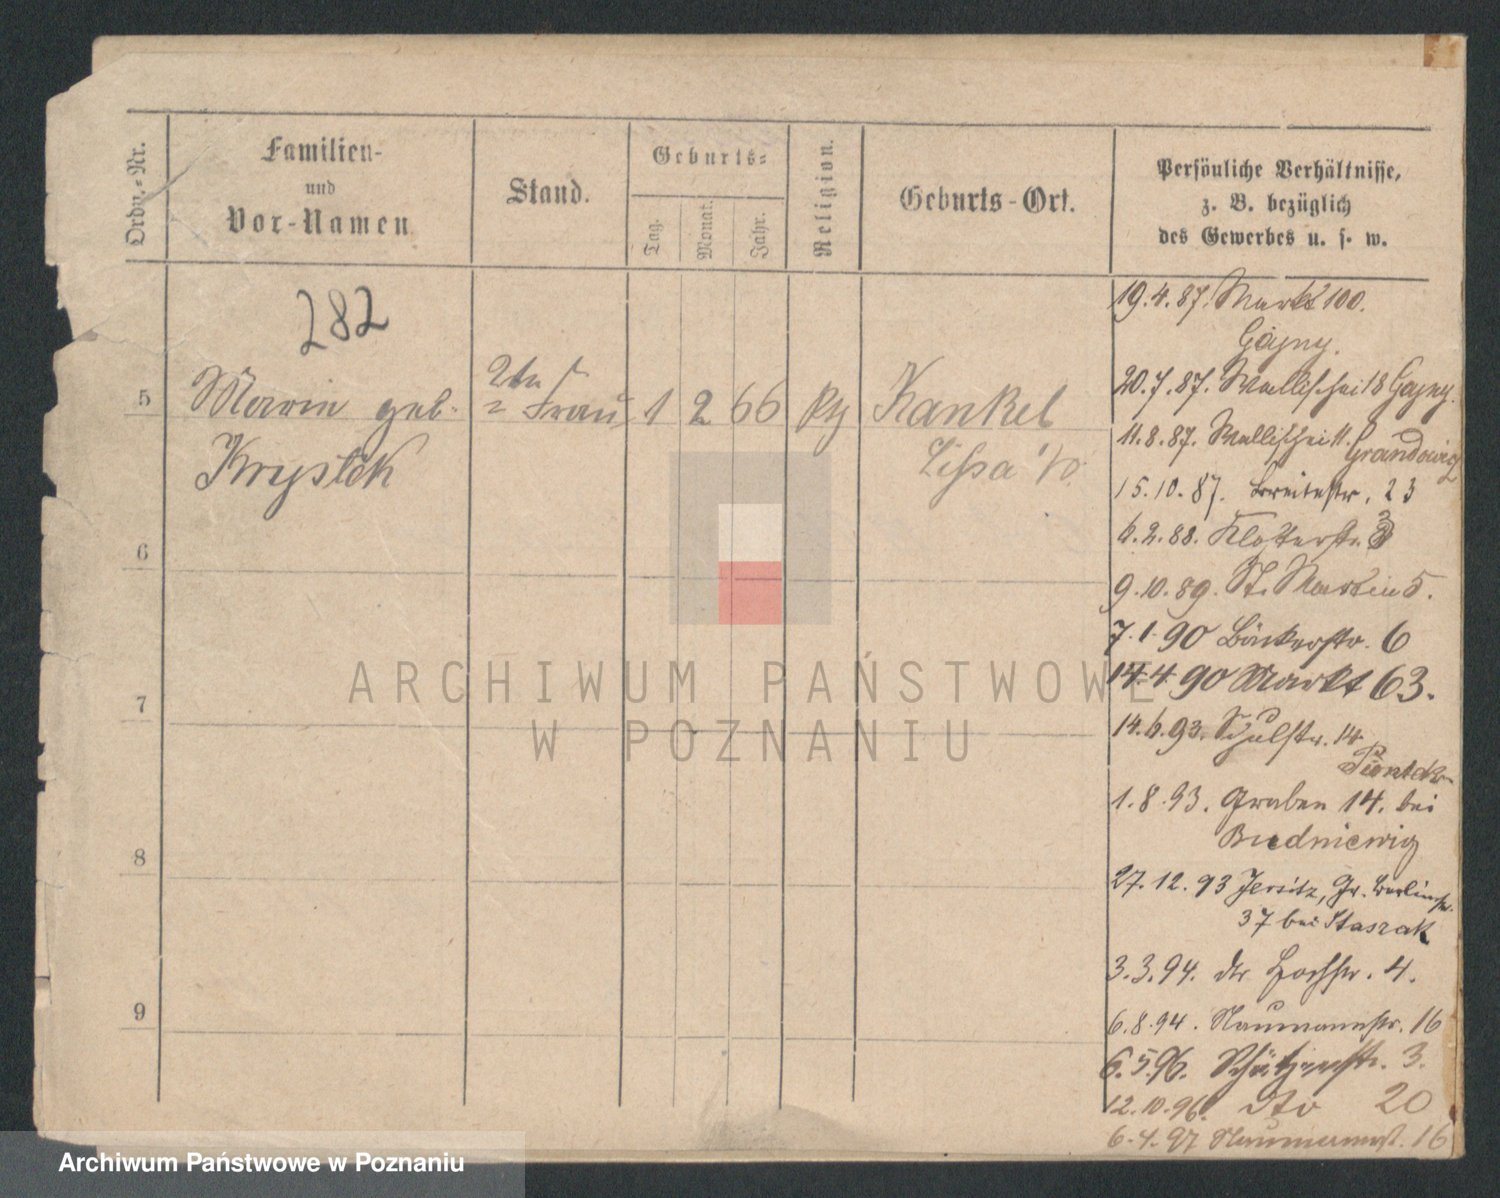 Ordn.-Nr.
Familien-
und
Vor-Namen
Stand.
Geburts-
Tag.
Monat.
Jahr.
Religion.
Geburts-Ort.
Persönliche Verhältnisse,
z. B. bezüglich
des Gewerbes u. s. w.
282
5
Marie geb.
Krystek
2te
= Frau
1
2
66
Kankel
Lissa
6
7
8
9
19.4.87. Markt 100.
20.7.87. Wallischei 18
11.8.87. Wallischei 11.
15.10.87. Breitestr. 23
6.2.88. Klosterstr. 3
9.10.89. St. Martin 5.
7.1.90 Bäckerstr. 6
14.4.90 Markt 63.
14.6.93. Schulstr. 14
1.8.93. Graben 14. bei
27.12.93 Jersitz, Gr. Berlinerstr.
37 bei Staszak
3.3.94. Hochstr. 4.
6.8.94. Naumannstr. 16
6.5.96. Schützenstr. 3.
12.10.96. dto 20
6.4.97 Naumannst. 16
ARCHIWUM PAŃSTWOWE
W POZNANIU
Archiwum Państwowe w Poznaniu